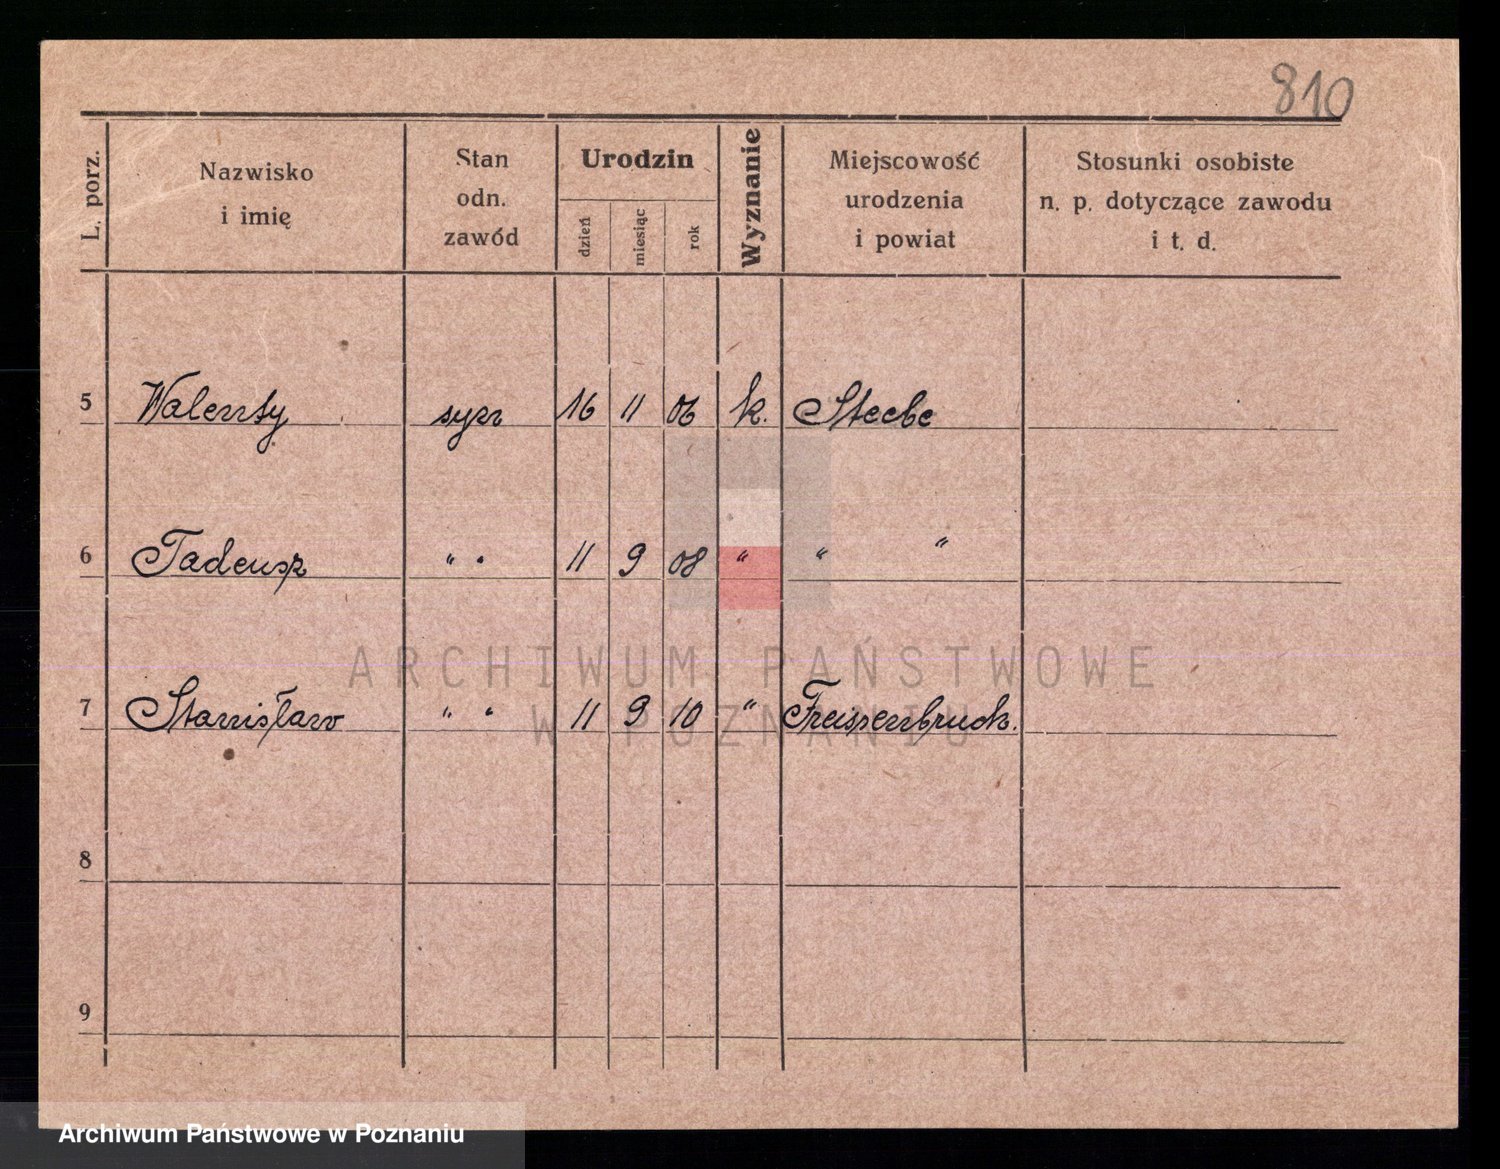 810
L. porz.
Nazwisko
i imię
Stan
odn.
zawód
Urodzin
dzień
miesiąc
rok
Wyznanie
Miejscowość
urodzenia
i powiat
Stosunki osobiste
n. p. dotyczące zawodu
i t. d.
5 Walenty syn 16 11 06 k. Steele
6 Tadeusz " " 11 9 08 " " "
7 Stanisław " " 11 9 10 " Freisenbruch.
8
9
ARCHIWUM PAŃSTWOWE
W POZNANIU
Archiwum Państwowe w Poznaniu